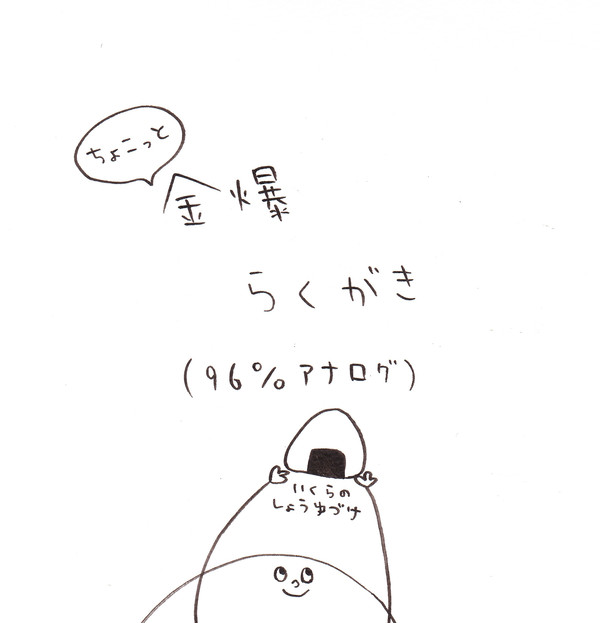 ちょこっと
金爆
らくがき
(96%アナログ)
いくらの
しょうゆづけ